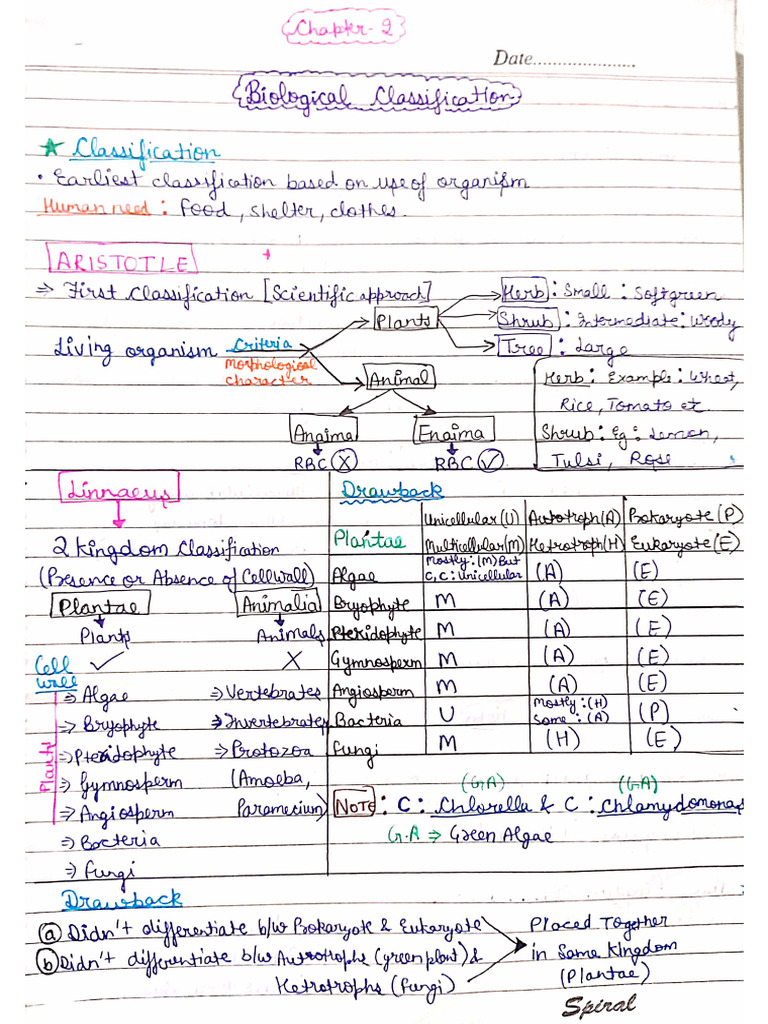 Chapter-2
Date.....................
Biological Classification
★ Classification
• Earliest classification based on use of organism
Human need : Food, shelter, clothes.
ARISTOTLE +
⇒ First Classification [Scientific approach]
Herb : Small : Soft green
Plants
Shrub : Intermediate : Woody
Tree : Large
Living organism Criteria
Morphological
character
Animal
Anaima Enaima
RBC X RBC ✓
Herb : Example : Wheat,
Rice, Tomato etc.
Shrub : Eg : Lemon,
Tulsi, Rose
Linnaeus
2 kingdom Classification
(Presence or Absence of Cellwall)
Plantae Animalia
Plants Animals
Cell wall ✓ X
Plants
⇒ Algae ⇒ Vertebrates
⇒ Bryophyte ⇒ Invertebrates
⇒ Pteridophyte ⇒ Protozoa
⇒ Gymnosperm (Amoeba,
⇒ Angiosperm Paramesium)
⇒ Bacteria
⇒ Fungi
Drawback
Plantae Unicellular(U) Autotroph(A) Prokaryote(P)
Multicellular(M) Hetrotroph(H) Eukaryote(E)
Algae Mostly:(M) But C,C: Unicellular (A) (E)
Bryophyte M (A) (E)
Pteridophyte M (A) (E)
Gymnosperm M (A) (E)
Angiosperm M (A) (E)
Bacteria U Mostly:(H) Some:(A) (P)
Fungi M (H) (E)
(GA) (GA)
NOTE : C : Chlorella & C : Chlamydomonas
G.A ⇒ Green Algae
Drawback
(a) Didn't differentiate b/w Prokaryote & Eukaryote
(b) Didn't differentiate b/w Autrotrophs (green plant) &
Hetrotrophs (fungi)
Placed Together
in Same Kingdom
(Plantae)
Spiral